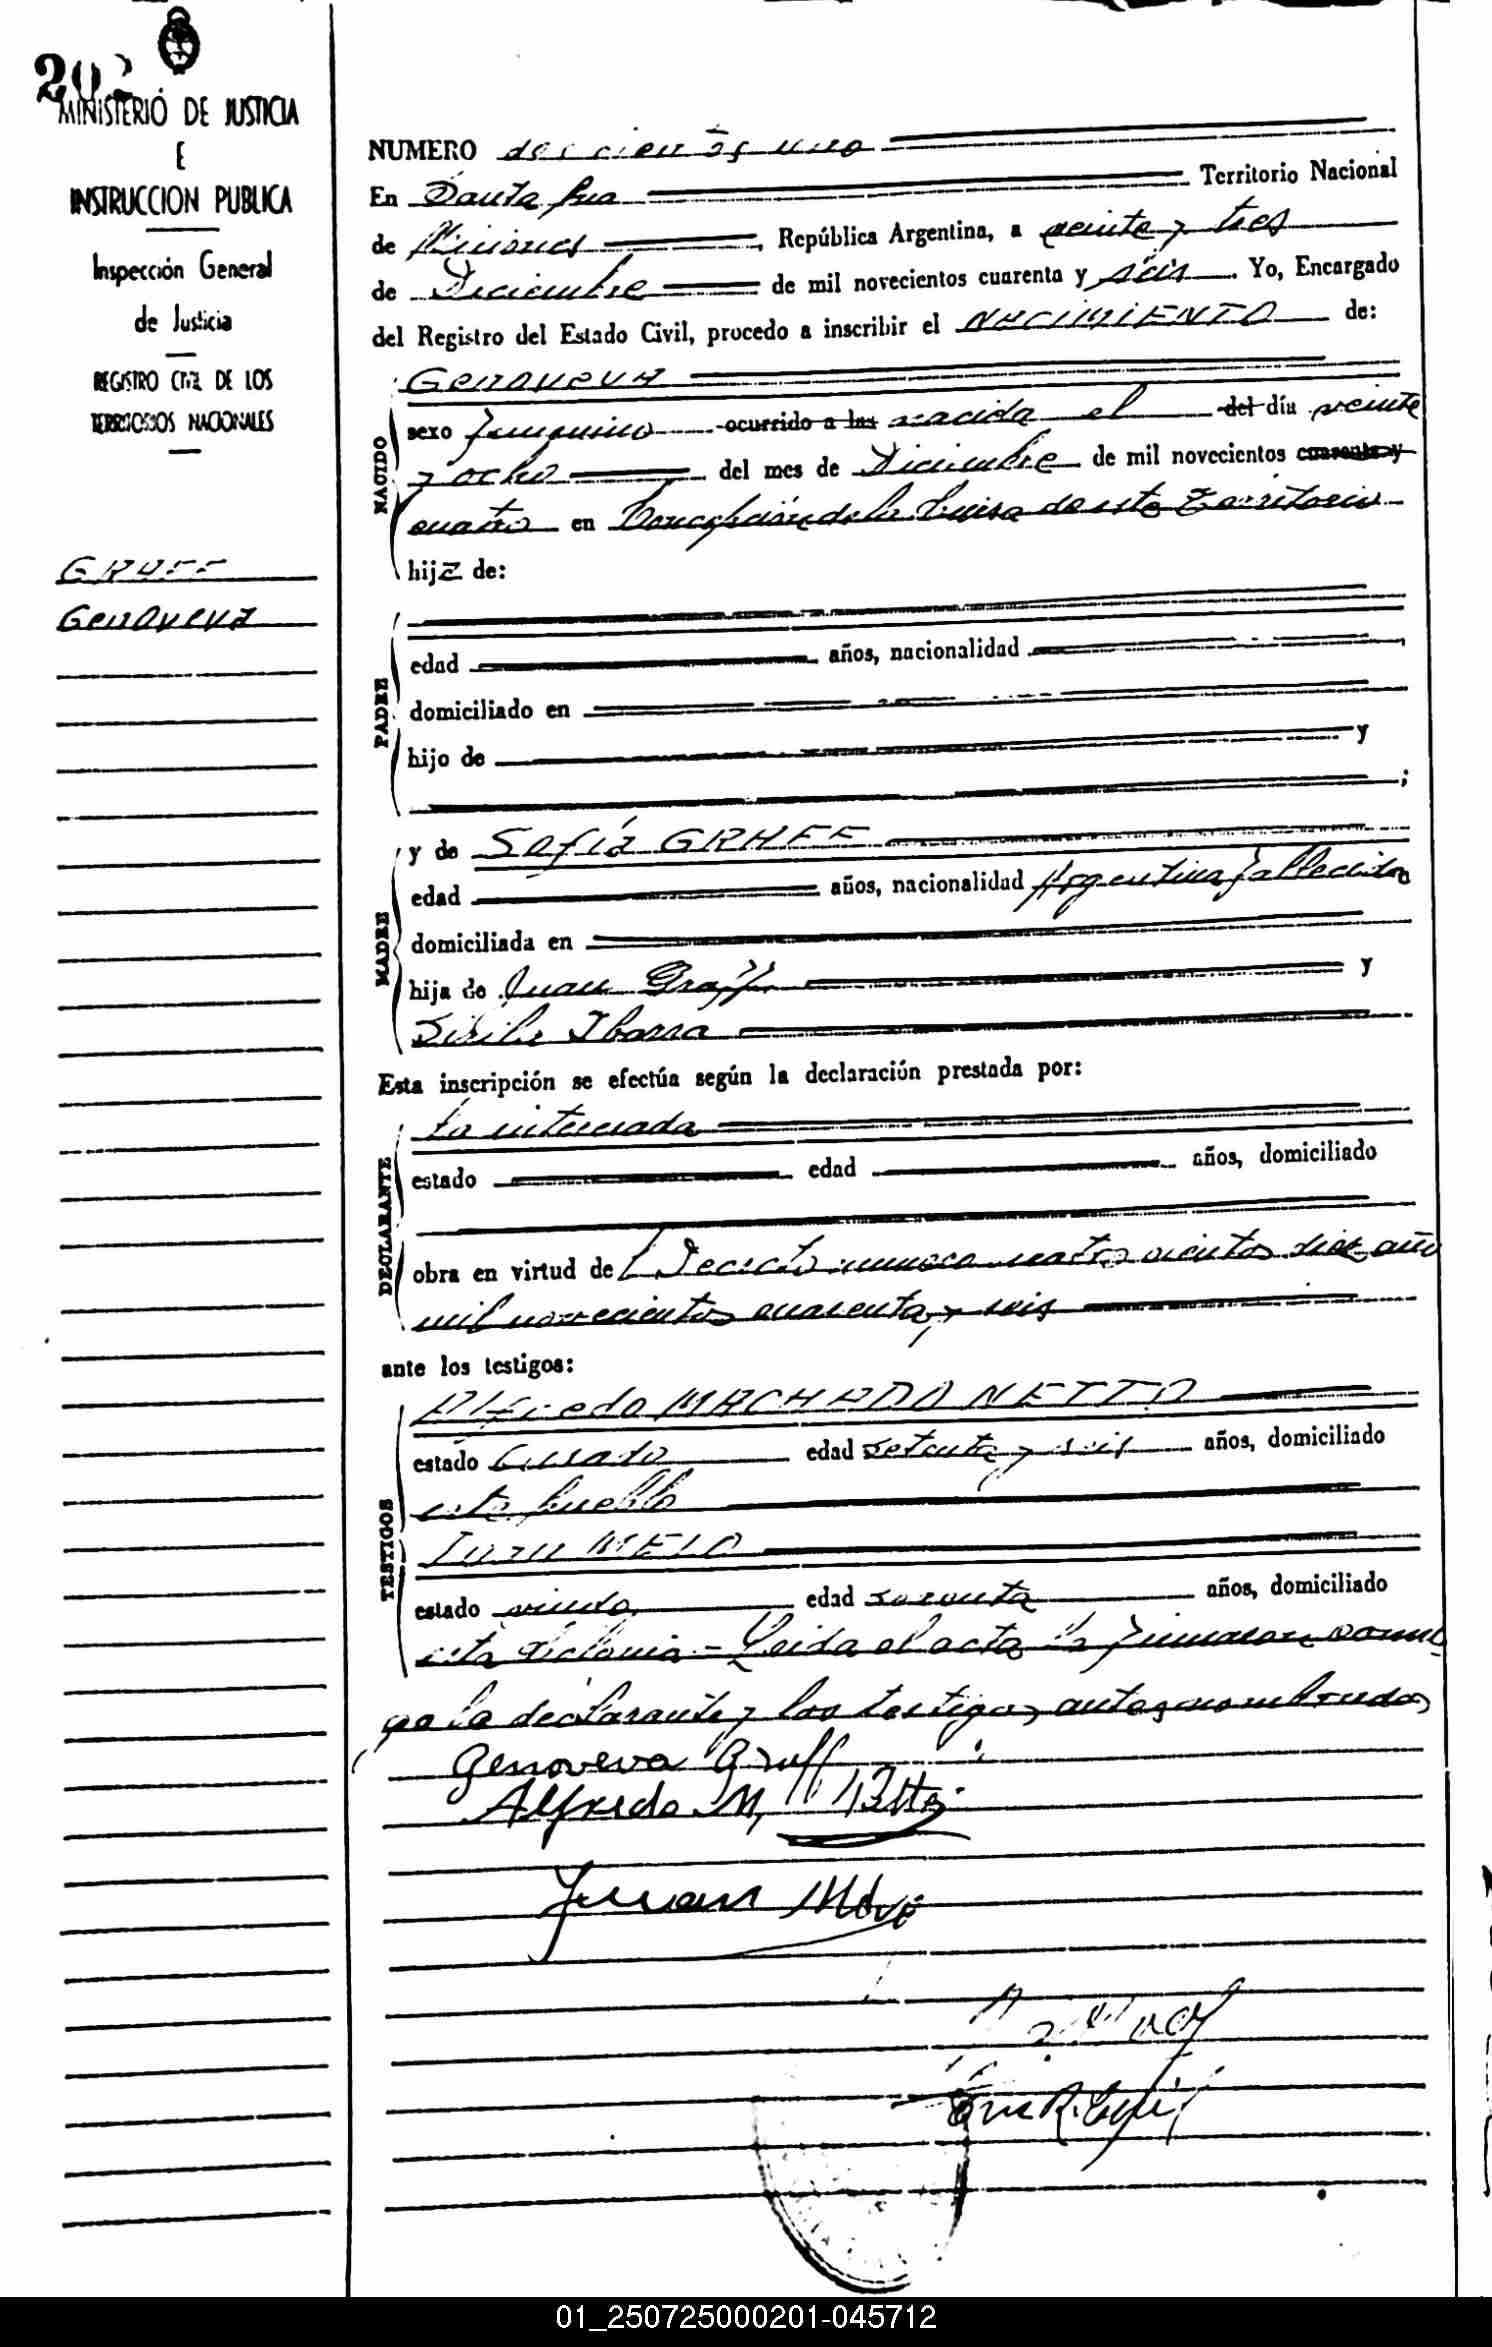 202
MINISTERIO DE JUSTICIA
E
INSTRUCCION PUBLICA
Inspección General
de Justicia
REGISTRO CIVIL DE LOS
TERRITORIOS NACIONALES
GRAFF
Genoveva
NUMERO doscientos uno
En Santa Ana Territorio Nacional
de Misiones, República Argentina, a veinte y tres
de Diciembre de mil novecientos cuarenta y seis. Yo, Encargado
del Registro del Estado Civil, procedo a inscribir el NACIMIENTO de:
NACIDO
Genoveva
sexo femenino ocurrido a las nacida el del día veinte
y ocho del mes de Diciembre de mil novecientos cuarenta y
cuatro en Concepción de la Sierra de este Territorio
hija de:
PADRE
edad años, nacionalidad
domiciliado en
hijo de y
;
MADRE
y de Sofía GRAFF
edad años, nacionalidad Argentina fallecida
domiciliada en
hija de Juan Graff y
Ibarra
Esta inscripción se efectúa según la declaración prestada por:
DECLARANTE
La interesada
estado edad años, domiciliado
obra en virtud de Decreto numero cuatro cientos diez año
mil novecientos cuarenta y seis
ante los testigos:
TESTIGOS
Alfredo MACHADO NETTO
estado Casado edad setenta y seis años, domiciliado
este pueblo
Juan MELO
estado viudo edad sesenta años, domiciliado
esta Colonia - Leida el acta la firmaron
la declarante y los testigos antes nombrados
Genoveva Graff
Alfredo M. Netto
Juan Melo
01_250725000201-045712